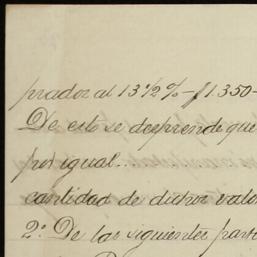 prador al 13½%-$1.350-
De esto se desprende que
por igual..
cantidad de dichos valo
2º De las siguientes part